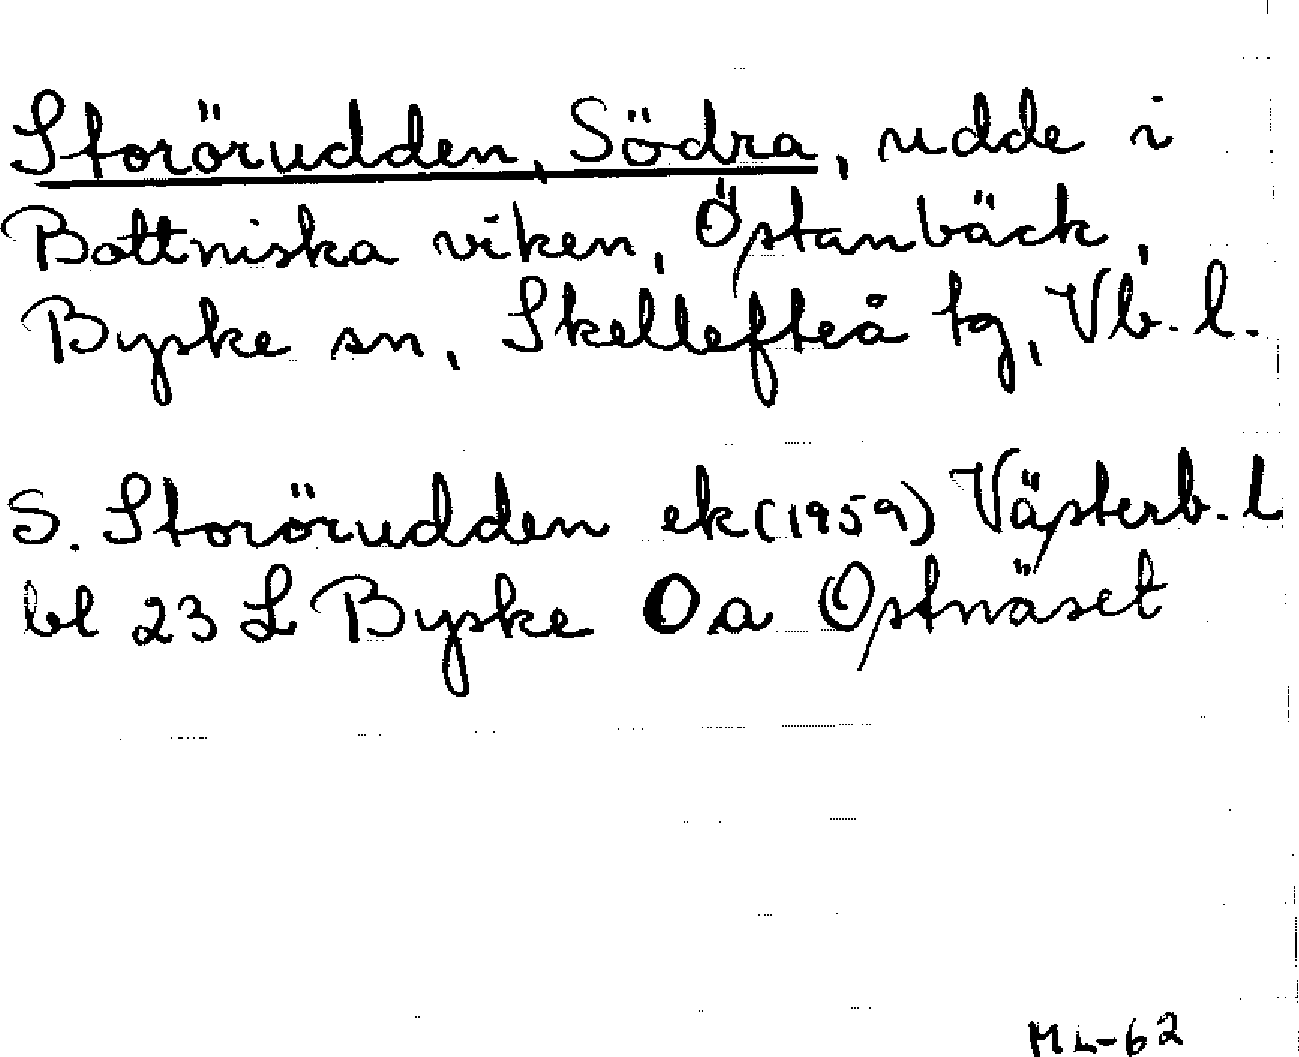 Storörudden, Södra, udde i
Bottniska viken, Östanbäck,
Byske sn, Skellefteå tg, Vb. l.
S. Storörudden ek (1959) Västerb. l
bl 23 L Byske Oa Ostnäset
ML-62